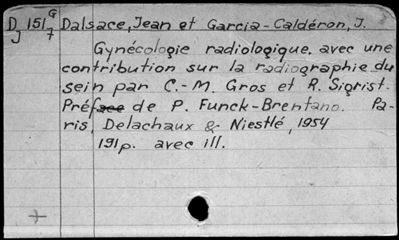 D 151 G Dalsace, Jean et Garcia-Caldéron, J.
J 7
Gynécologie radiologique, avec une
contribution sur la radiographie du
sein par C.-M. Gros et R. Sigrist.
Préface de P. Funck-Brentano. Pa-
ris, Delachaux & Niestlé, 1954
191p. avec ill.